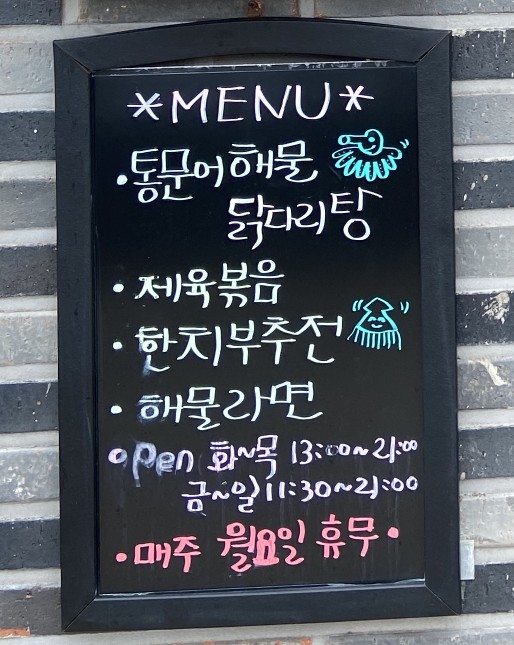 *MENU*
• 통문어해물
닭다리탕
• 제육볶음
• 한치부추전
• 해물라면
• open 화~목 13:00~21:00
금~일 11:30~21:00
• 매주 월요일 휴무 •